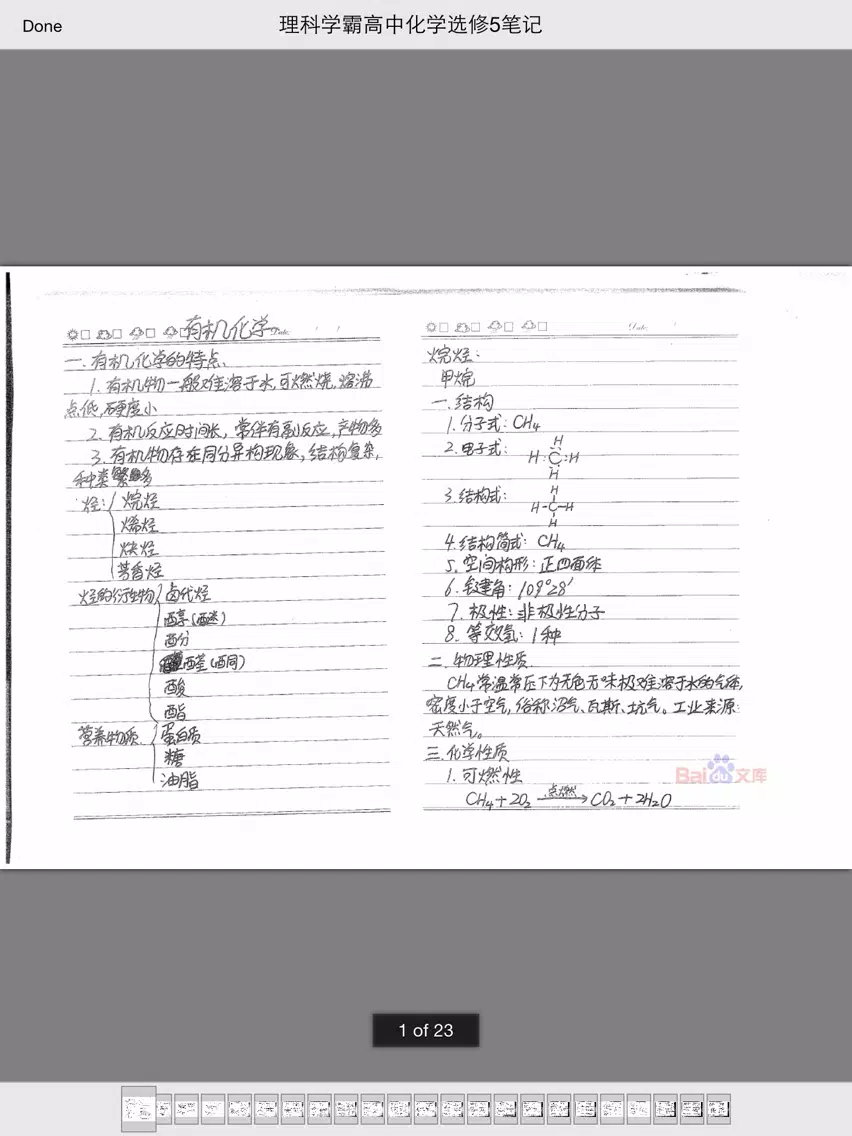 Done
理科学霸高中化学选修5笔记
有机化学
一.有机化学的特点.
1.有机物一般难溶于水,可燃烧,熔沸
点低,硬度小
2.有机反应时间长,常伴有副反应,产物多
3.有机物存在同分异构现象,结构复杂,
种类繁多
烃: 烷烃
烯烃
炔烃
芳香烃
烃的衍生物 卤代烃
醇(醚)
酚
醛(酮)
酸
酯
营养物质 蛋白质
糖
油脂
Date
烷烃:
甲烷
一.结构
1.分子式: CH4
2.电子式:
H
H:C:H
H
3.结构式:
H
H-C-H
H
4.结构简式: CH4
5.空间构形: 正四面体
6.键角: 109°28′
7.极性: 非极性分子
8.等效氢: 1种
二.物理性质
CH4常温常压下为无色无味极难溶于水的气体,
密度小于空气,俗称沼气、瓦斯、坑气。工业来源:
天然气。
三.化学性质
1.可燃性
CH4+2O2 点燃→ CO2+2H2O
Baidu文库
1 of 23